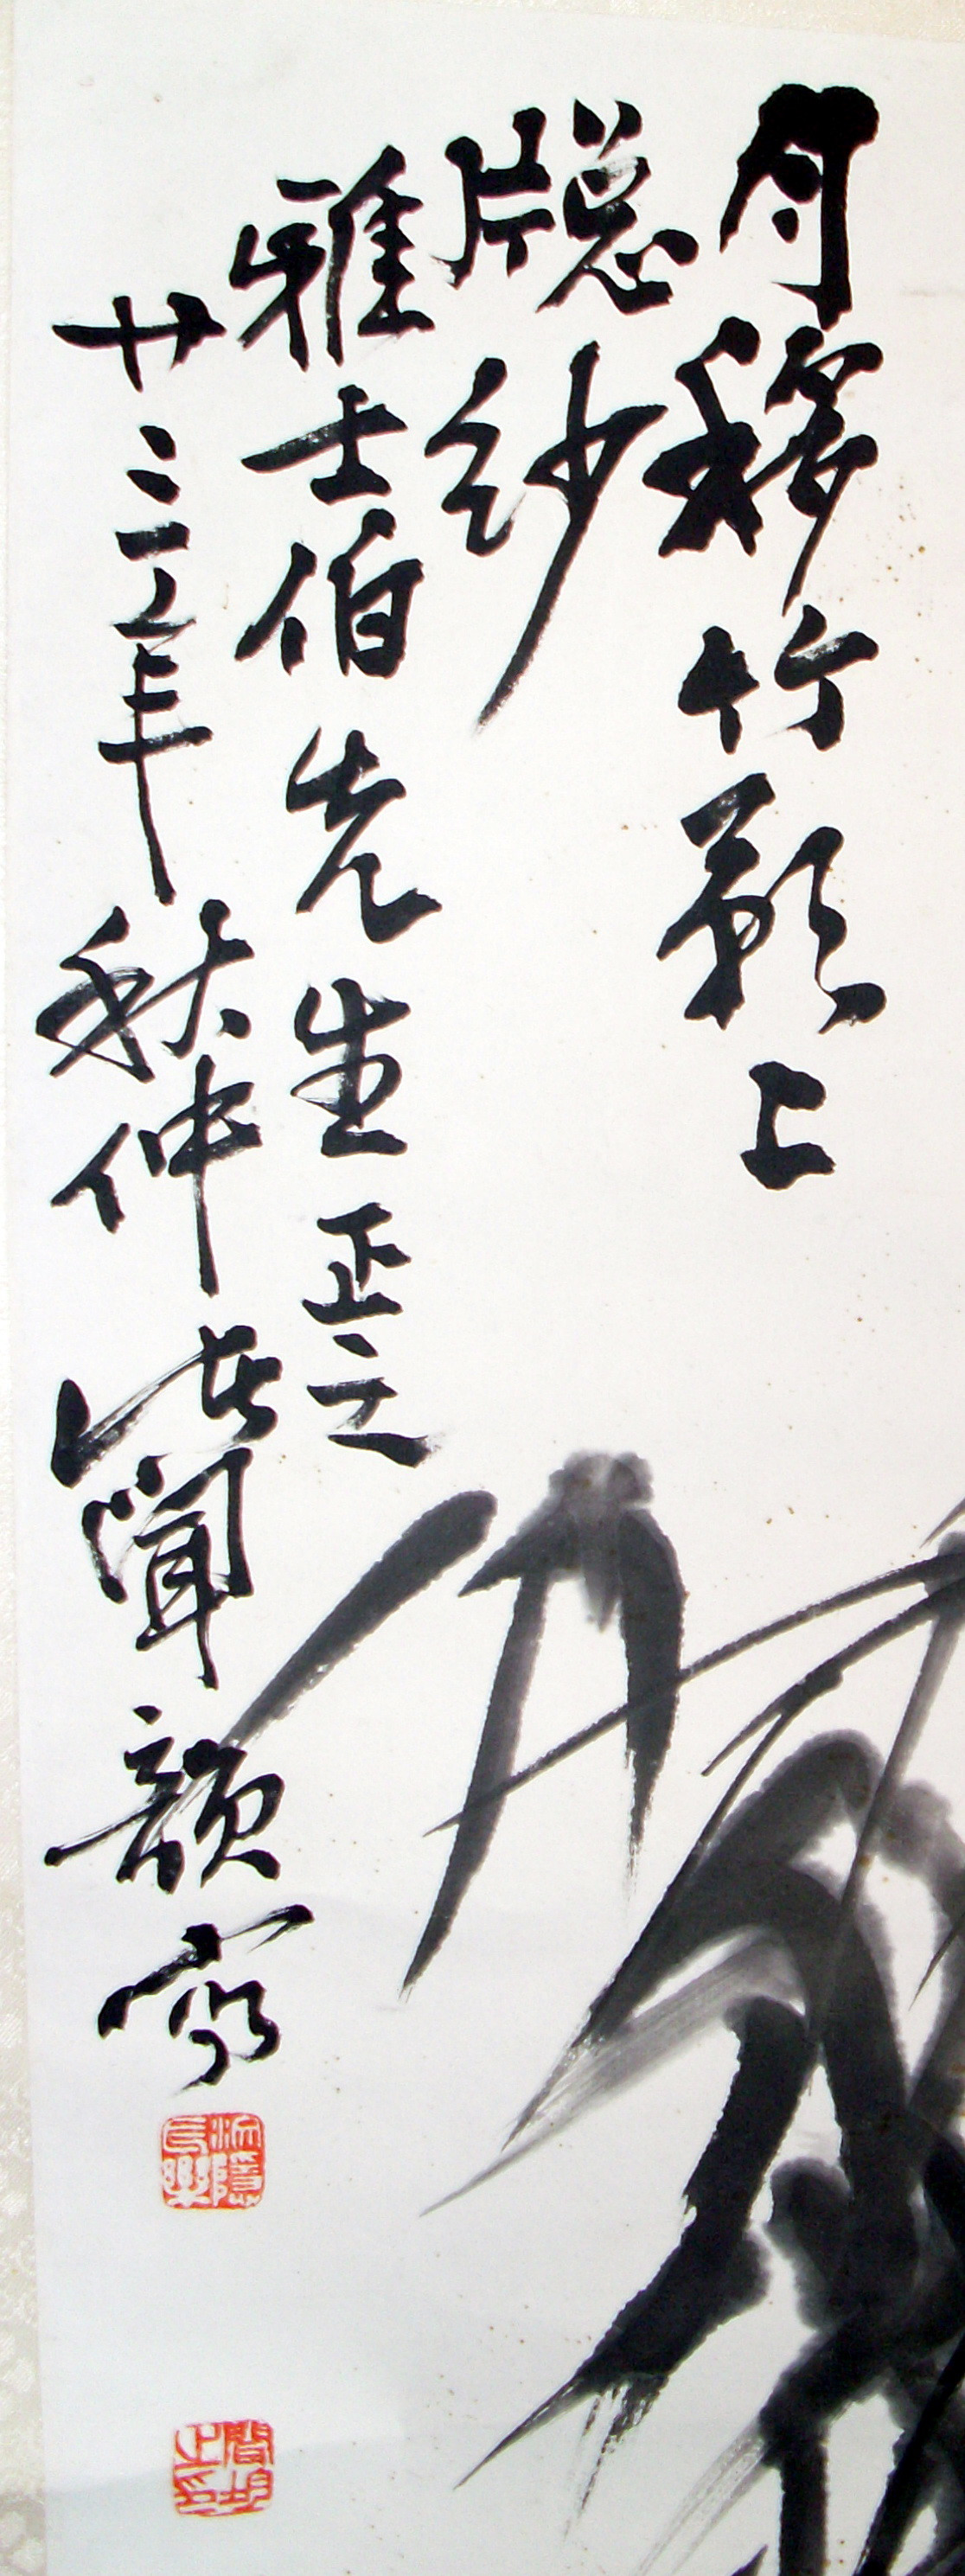 月移竹影上
牕紗
雅士伯先生正之
廿三年秋仲諸聞韻寫